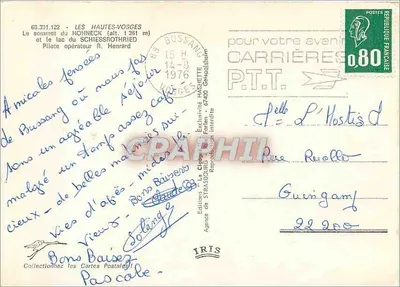 60.321.122 - LES HAUTES-VOSGES
Le sommet du HOHNECK (alt. 1 361 m)
et le lac du SCHIESSROTHRIED
Pilote opérateur R. Henrard
Amicales pensées
de Bussang où nous fai
sons un agréable séjour
malgré un temps assez capri
cieux - de belles marches sui-
vies d'après-midi
Bons Baisers
Bons Baisez
Pascale.
Collectionnez les Cartes Postales
Editions "La Cigogne" - Exclusivité HACHETTE
Reproduction interdite
IRIS
88 BUSSANG
15 H
14-8
1976
VOSGES
pour votre avenir
CARRIÈRES
P.T.T.
POSTES
0,80
REPUBLIQUE FRANÇAISE
CPAPHIL
Melle L'Hostis
Rue Ruello
Guingamp
22200